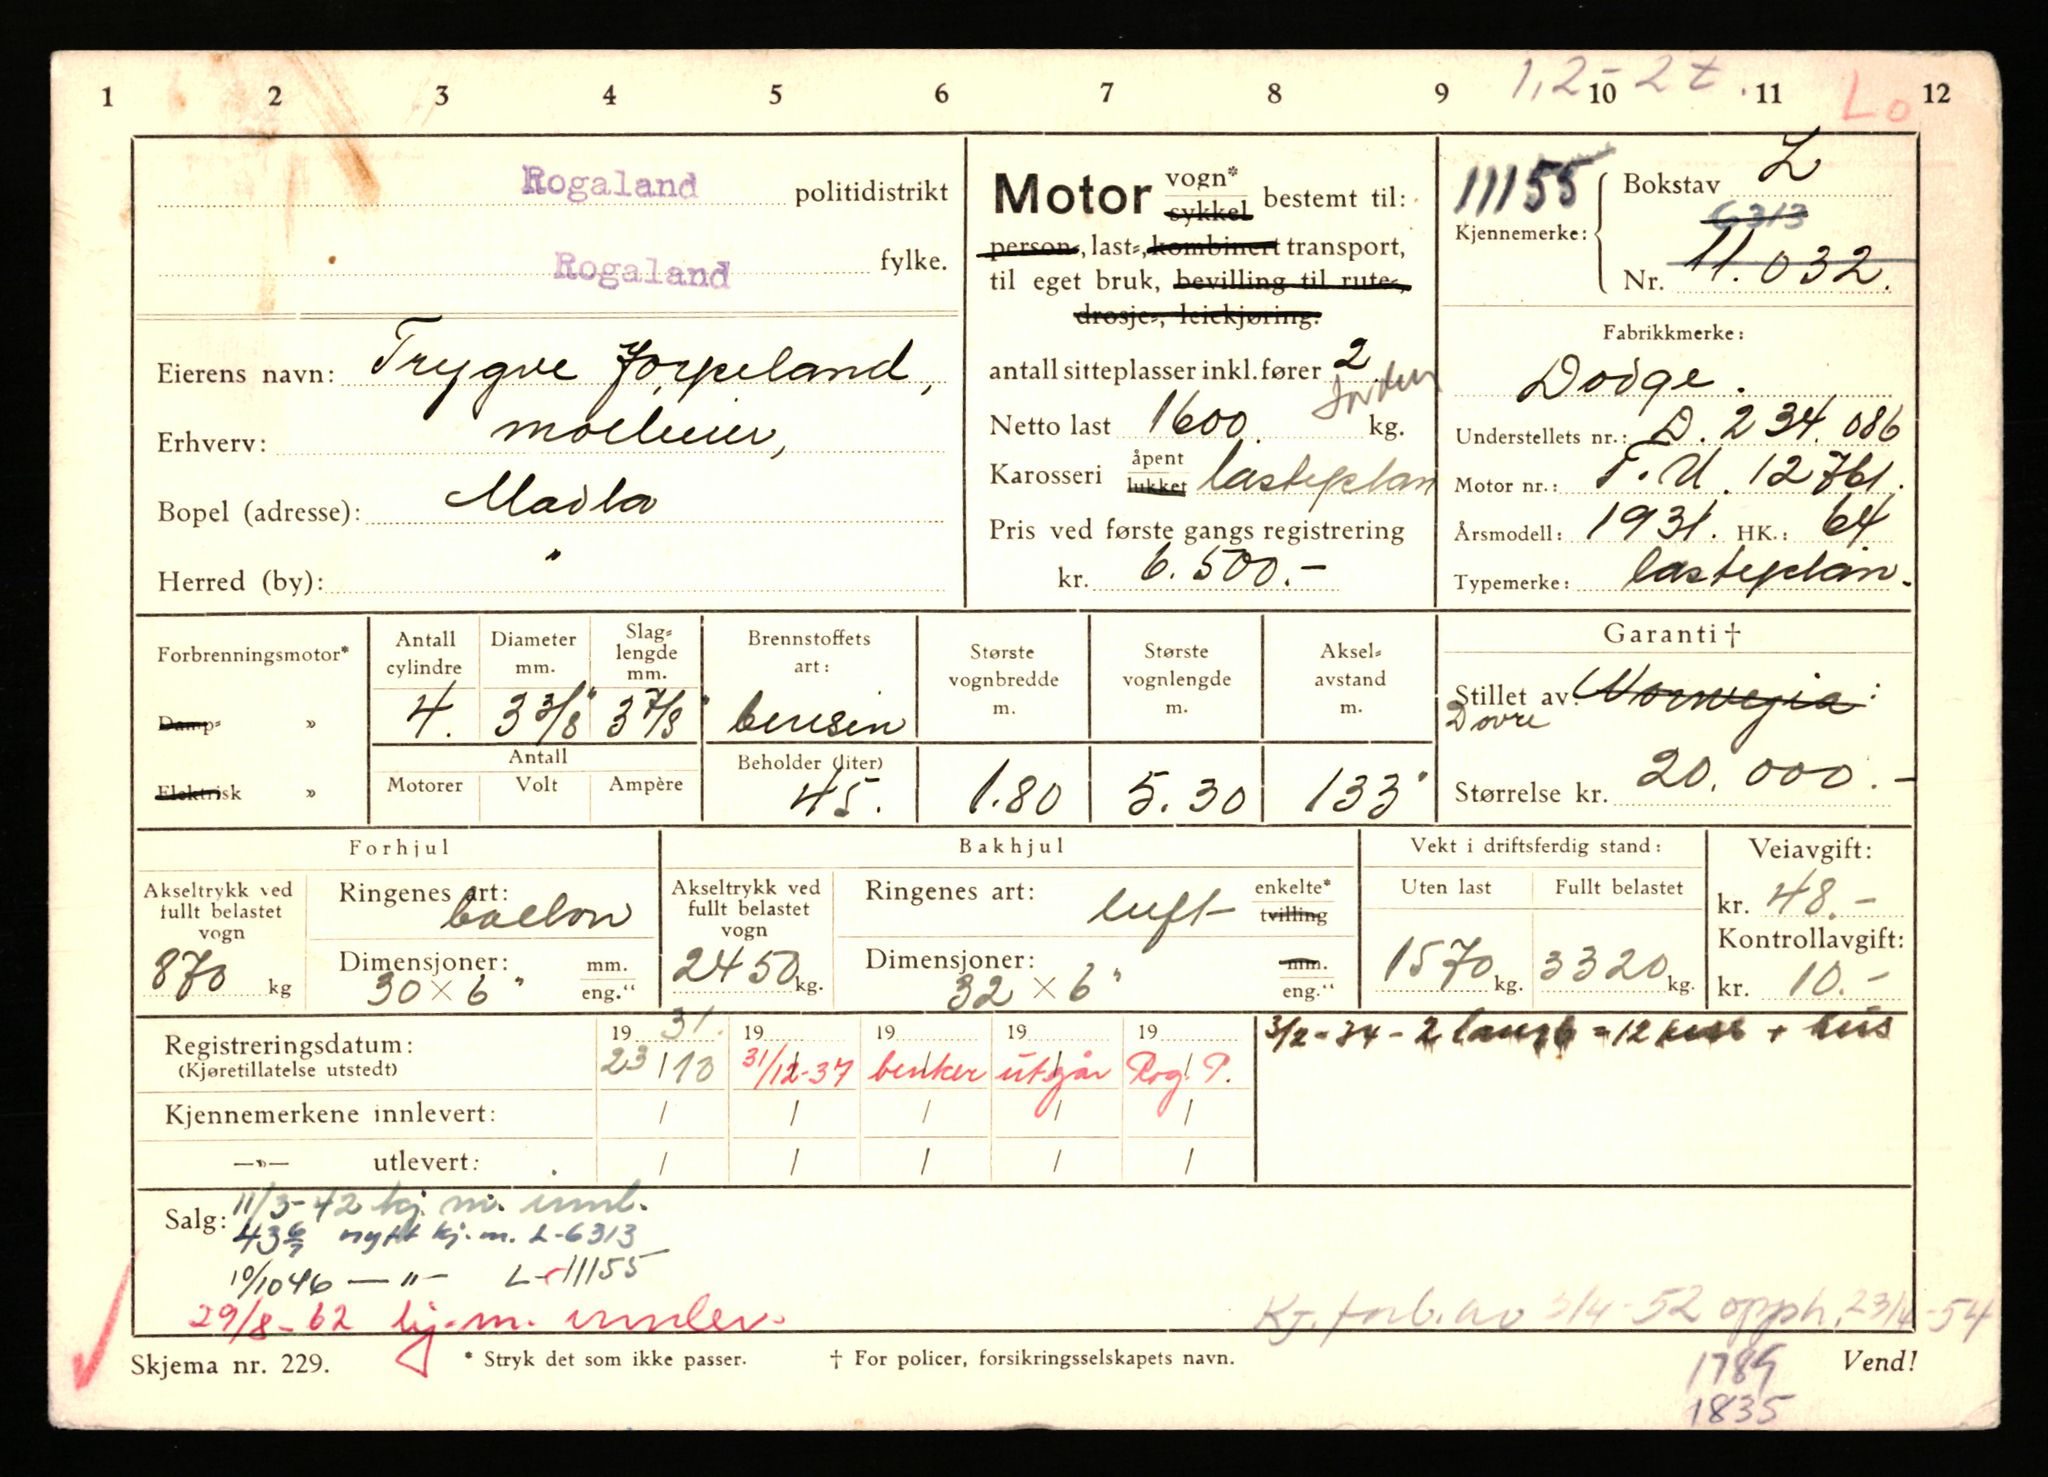 1 2 3 4 5 6 7 8 9 10 11 12
1,2-2 t. Lo
Rogaland politidistrikt
Rogaland fylke.
Eierens navn: Trygve Jørpeland,
Erhverv: mølleier,
Bopel (adresse): Madla
Herred (by): "
Motor vogn* sykkel bestemt til:
person-, last-, kombinert transport,
til eget bruk, bevilling til rute-,
drosje-, leiekjøring.
antall sitteplasser inkl. fører 2
Netto last 1600 kg.
Karosseri åpent lukket lasteplan
Pris ved første gangs registrering
kr. 6.500.-
11155
Kjennemerke:
Bokstav L
6313
Nr. 11.032.
Fabrikkmerke:
Dodge.
Understellets nr.: D. 234.086
Motor nr.: T.U. 12761.
Årsmodell: 1931. HK.: 64
Typemerke: lasteplan.
Forbrenningsmotor*
Damp- »
Elektrisk »
Antall cylindre 4.
Diameter mm. 3 3/8"
Slag-lengde mm. 3 7/8"
Antall
Motorer Volt Ampère
Brennstoffets art: bensin
Beholder (liter) 45.
Største vognbredde m. 1.80
Største vognlengde m. 5.30
Aksel-avstand m. 133"
Garanti †
Stillet av: Norwegia
Dovre
Størrelse kr. 20.000.-
Forhjul
Akseltrykk ved fullt belastet vogn 870 kg
Ringenes art: ballon
Dimensjoner: 30 × 6" mm. eng."
Bakhjul
Akseltrykk ved fullt belastet vogn 2450 kg.
Ringenes art: luft enkelte* tvilling
Dimensjoner: 32 × 6" mm. eng."
Vekt i driftsferdig stand:
Uten last Fullt belastet
1570 kg. 3320 kg.
Veiavgift:
kr. 48.-
Kontrollavgift:
kr. 10.-
Registreringsdatum:
(Kjøretillatelse utstedt)
19 31. 19 19 19 19
23/10 31/12-37 benker utgår Rog. P.
3/2-34-2 = 12 + hus
Kjennemerkene innlevert: / / / / /
—»— utlevert: / / / / /
Salg: 11/3-42 kj. m. innl.
43 6/7 nytt kj.m. L-6313
10/10 46 — " — L-11155
29/8-62 kj.m. innlev.
Kj. forb. av 3/4-52 opph. 23/4-54
Skjema nr. 229. * Stryk det som ikke passer. † For policer, forsikringsselskapets navn. Vend!
1789
1835